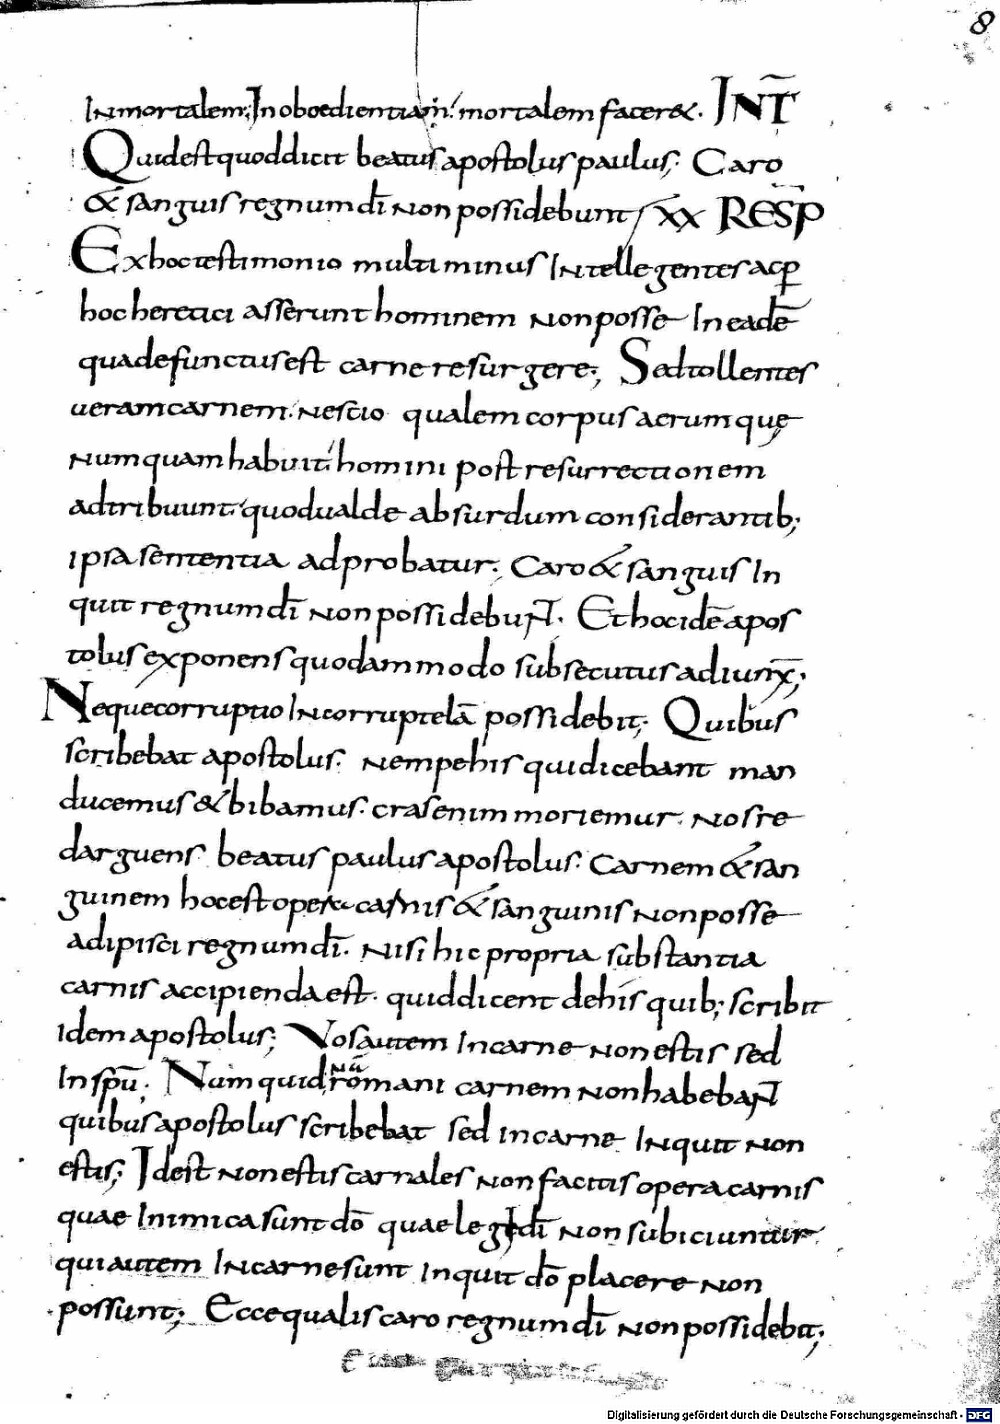 8
Inmortalem; Inoboedientiam mortalem facer&. INT̄
Quid est quod dicit beatus apostolus paulus; Caro
& sanguis regnum dī non possidebunt XX RESP̄
Ex hoc testimonio multi minus Intellegentes ac p̲
hoc heretici asserunt hominem non posse In eadē
qua defunctus est carne resurgere; Sed tollentes
ueram carnem. nescio qualem corpus aerum que
numquam habuit homini post resurrectionem
adtribuunt. quod ualde absurdum considerantib;
ipsa sententia adprobatur. Caro & sanguis In
quit regnum dī non possidebunt. Et hoc idē apos
tolus exponens quodammodo subsecutus adiunx̄;
Neque corruptio Incorruptelā possidebit; Quibus
scribebat apostolus. nempe his qui dicebant man
ducemus & bibamus. cras enim moriemur. nos re
darguens beatus paulus apostolus. Carnem & san
guinem hoc est opera carnis & sanguinis non posse
adipisci regnum dī. nisi hic propria substantia
carnis accipienda est. quid dicent de his quib; scribit
Idem apostolus; Vos autem In carne non estis sed
In sp̄u; Numquid romani carnem non habebant
quibus apostolus scribebat sed in carne Inquit non
estis; Id est non estis carnales non facitis opera carnis
quae Inimica sunt dō quae legi dī non subiciuntur
qui autem In carne sunt inquit dō placere non
possunt; Ecce qualis caro regnum dī non possidebit;
Digitalisierung gefördert durch die Deutsche Forschungsgemeinschaft - DFG